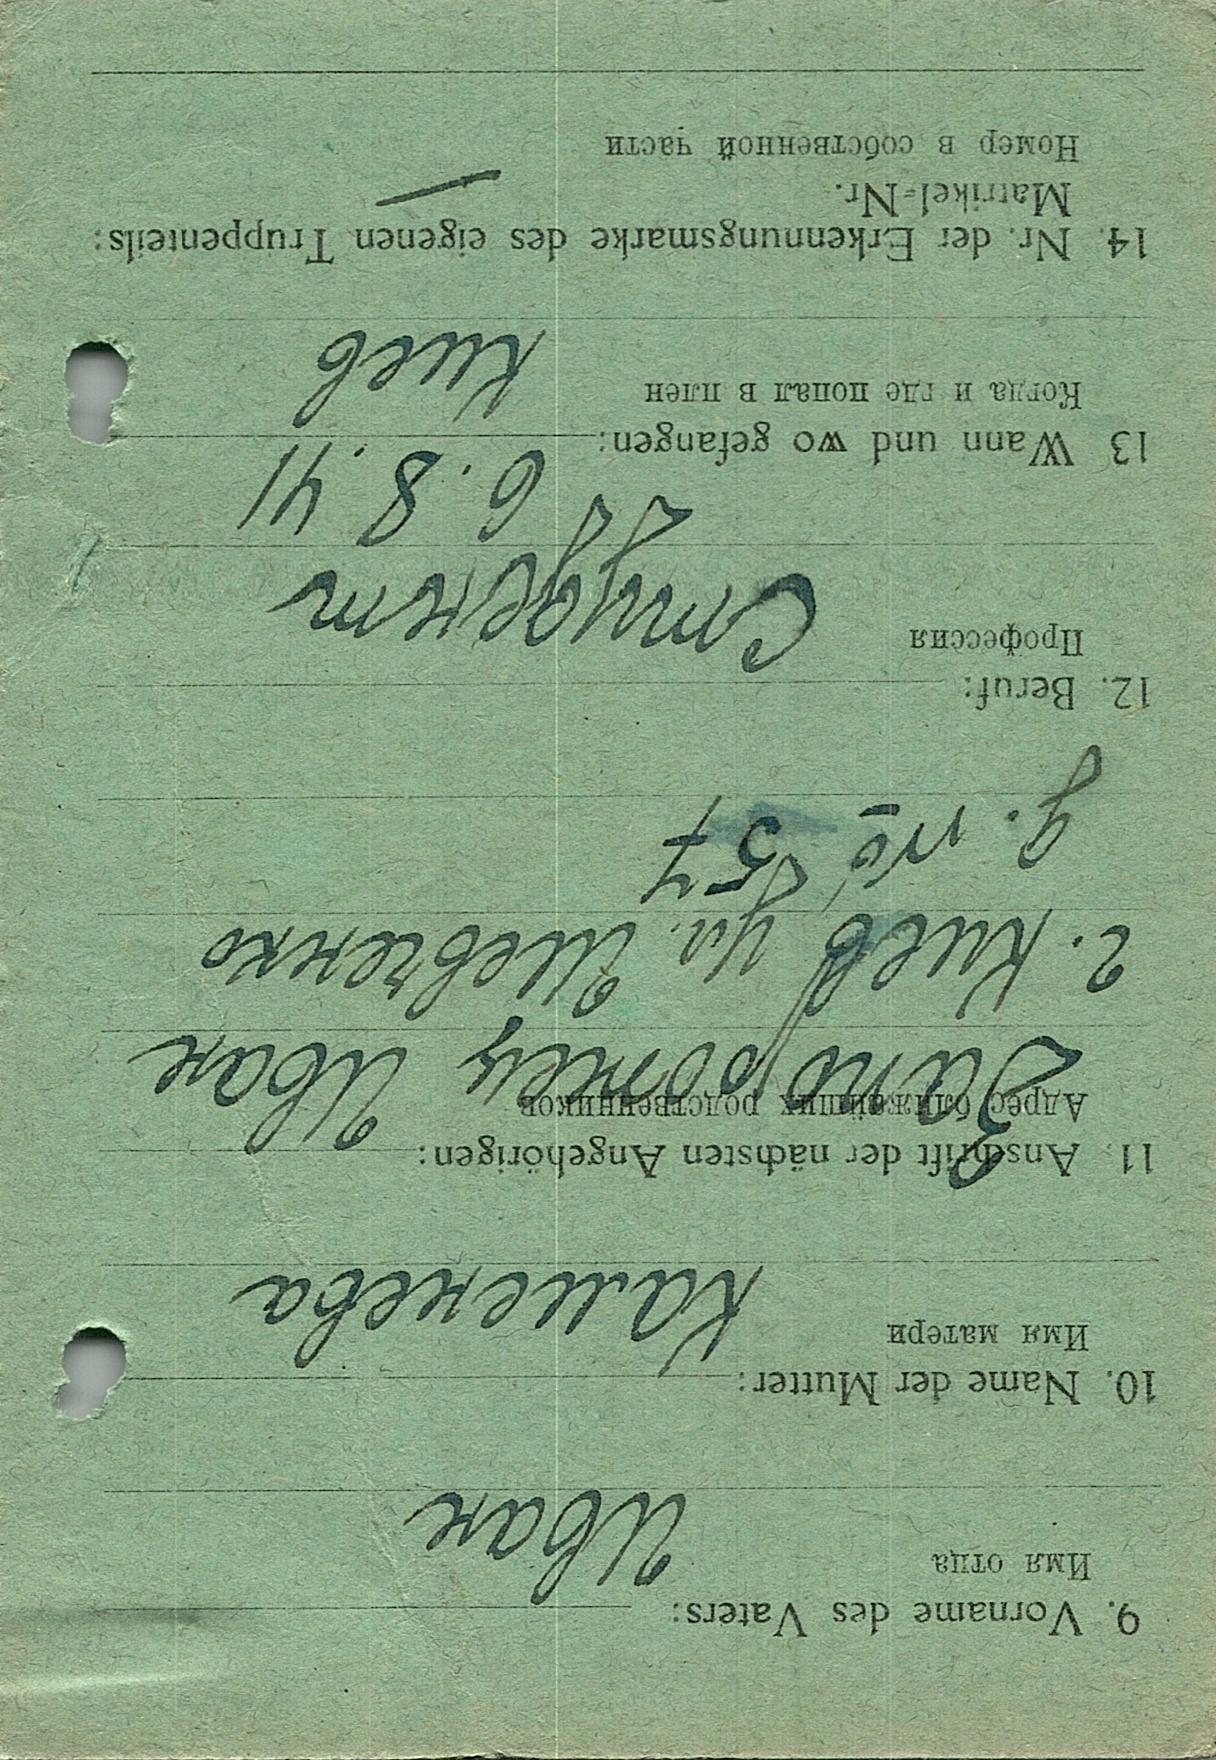 9. Vorname des Vaters:
Имя отца
Иван
10. Name der Mutter:
Имя матери
Каменева
11. Anschrift der nächsten Angehörigen:
Адрес ближайших родственников
Запорожец Иван
г. Киев ул. Шевченко
д. № 57
12. Beruf:
Профессия
Студент
13 Wann und wo gefangen:
Когда и где попал в плен
6. 8. 41
Киев
14. Nr. der Erkennungsmarke des eigenen Truppenteils:
Matrikel-Nr.
Номер в собственной части
—